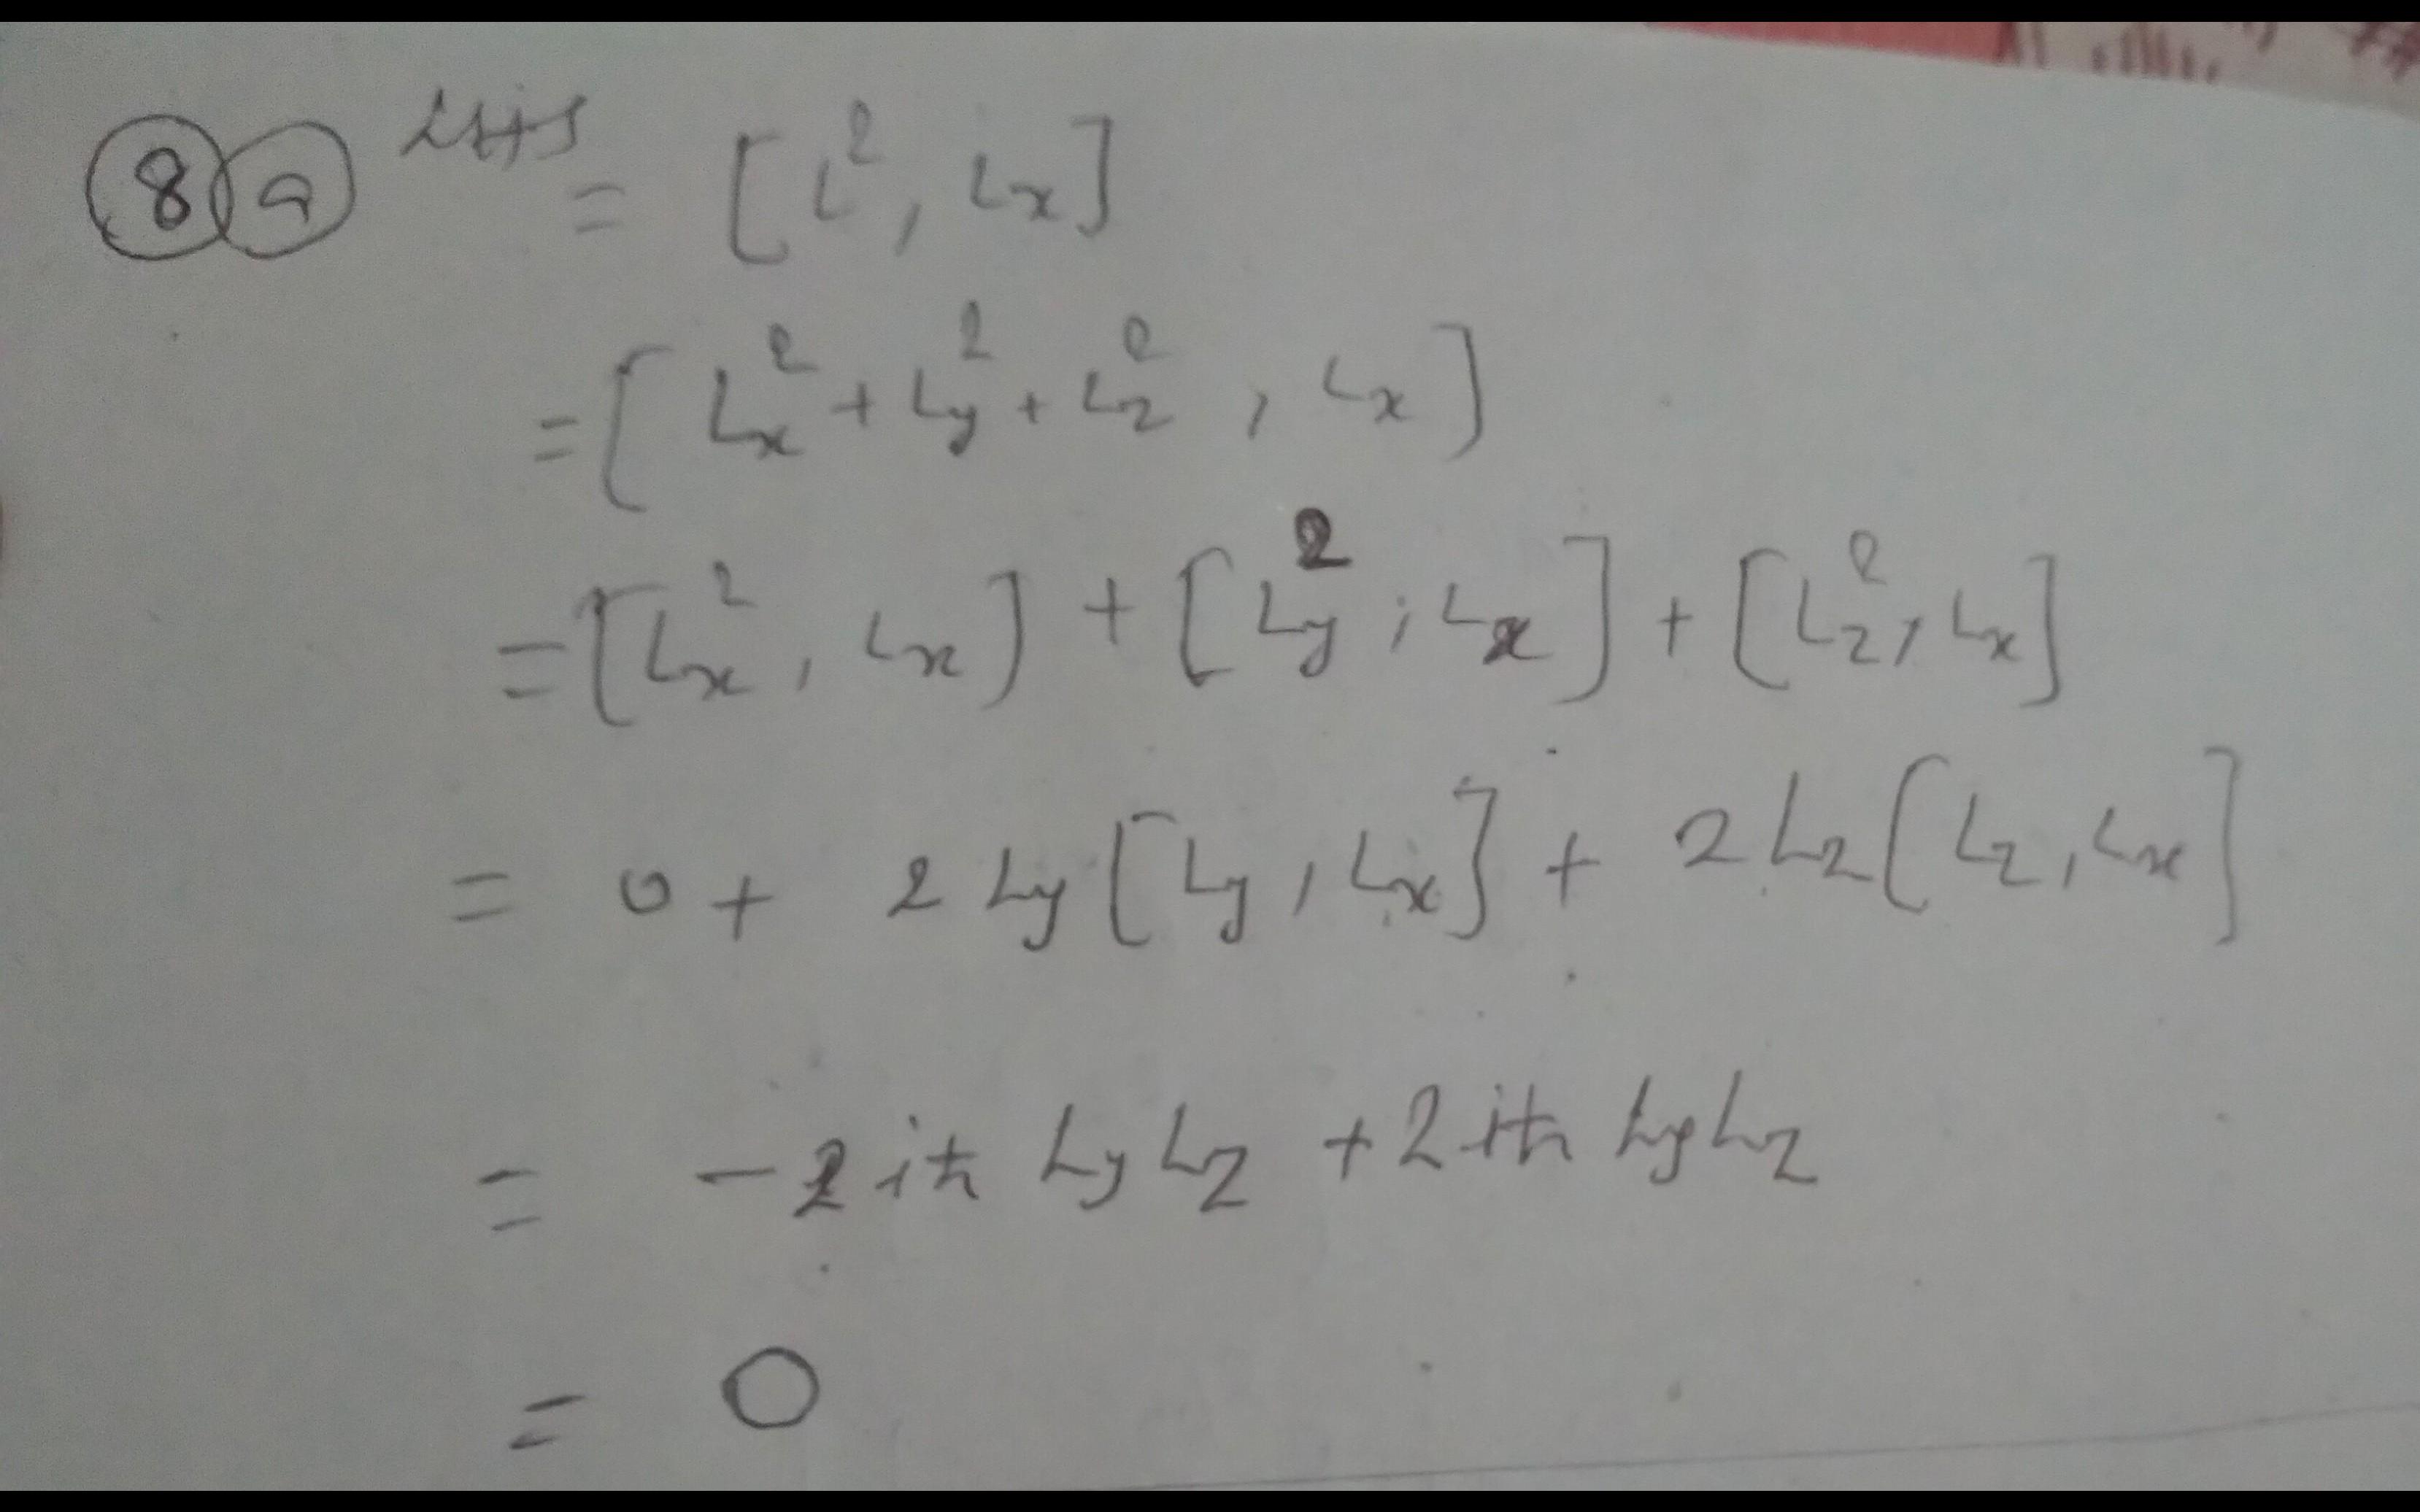 8 a LHS = [L², Lx]
= [Lx² + Ly² + Lz², Lx]
= [Lx², Lx] + [Ly², Lx] + [Lz², Lx]
= 0 + 2Ly[Ly, Lx] + 2Lz[Lz, Lx]
= -2iħ LyLz + 2iħ LyLz
= 0